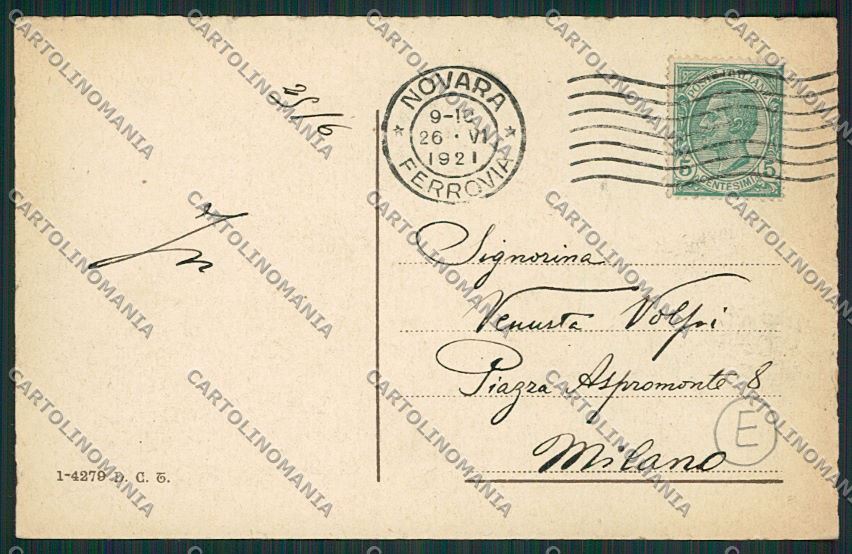 25/6
NOVARA
9-10
26 · VI
1921
FERROVIA
POSTE ITALIANE
5 CENTESIMI 5
Signorina
Venusta Volpi
Piazza Aspromonte 8
E
Milano
1-4279 D. C. T.
CARTOLINOMANIA